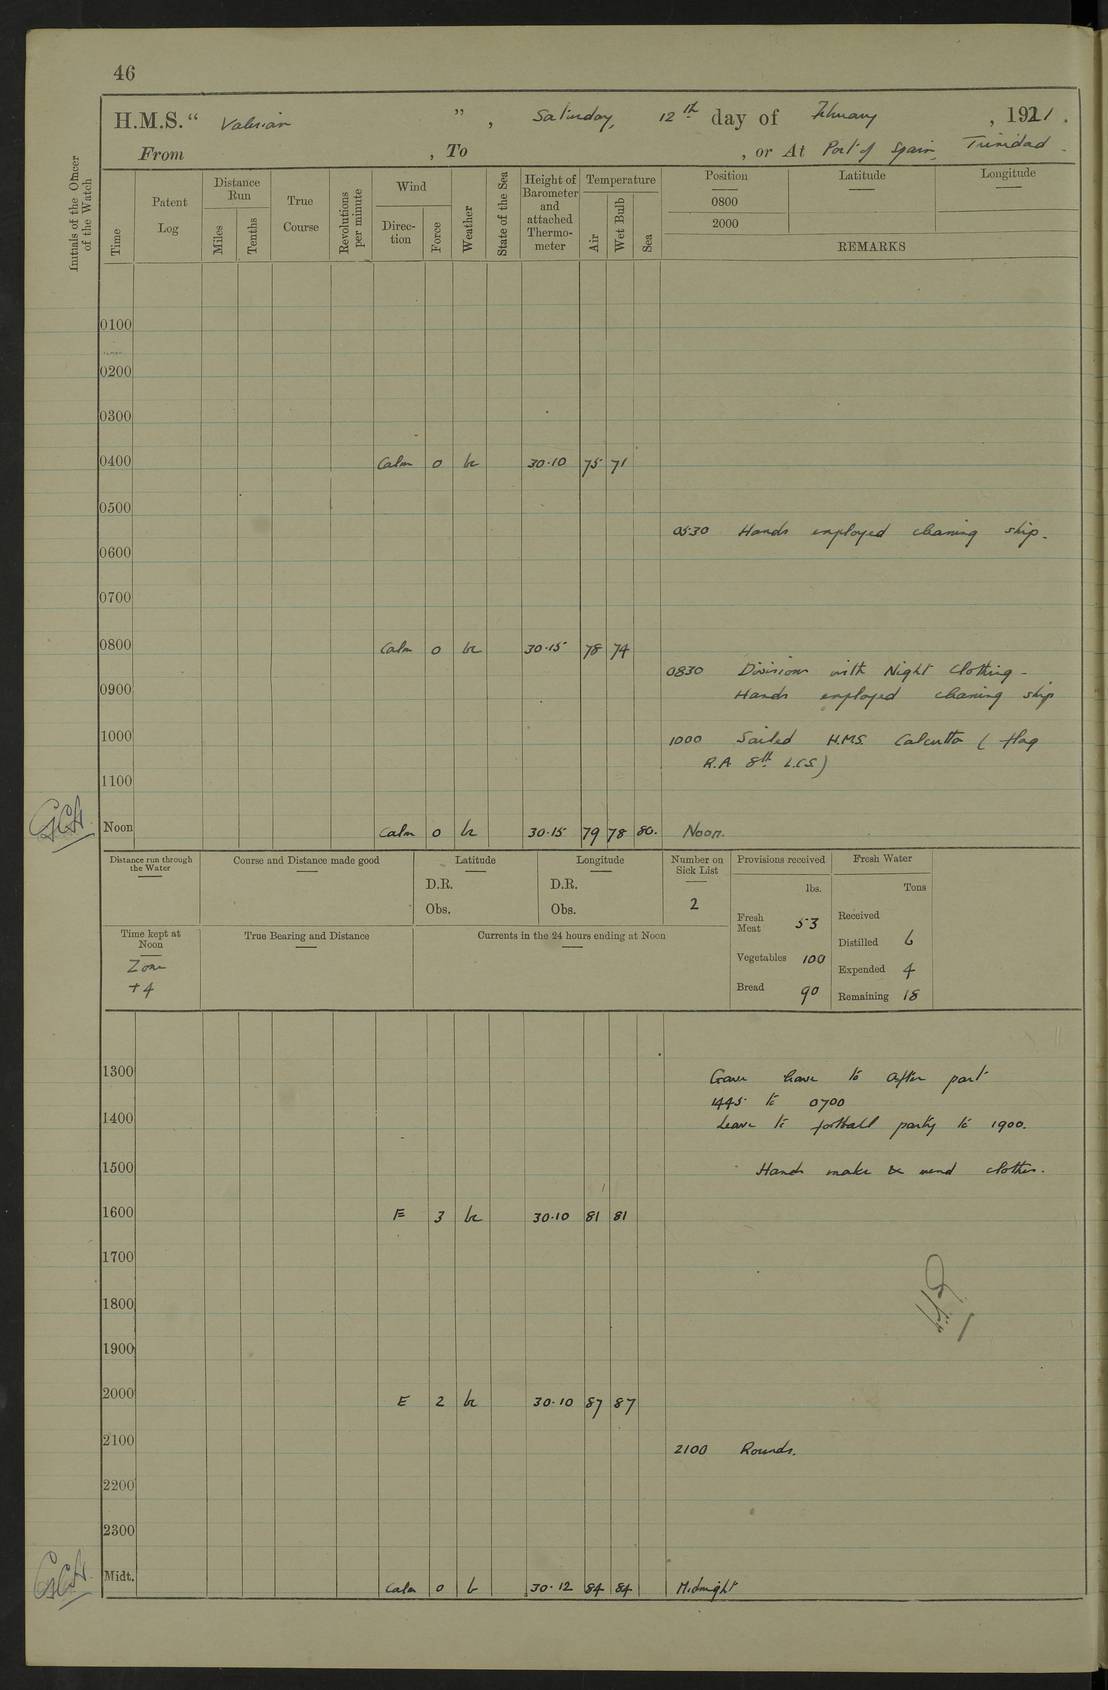 46
H.M.S. “ Valerian ” , Saturday, 12th day of February , 1921.
From , To , or At Port of Spain, Trinidad.
Initials of the Officer of the Watch
Time
Patent Log
Distance Run
Miles
Tenths
True Course
Revolutions per minute
Wind
Direction
Force
Weather
State of the Sea
Height of Barometer and attached Thermometer
Temperature
Air
Wet Bulb
Sea
Position Latitude Longitude
0800
2000
REMARKS
0100
0200
0300
0400 Calm 0 bc 30·10 75 71
0500
0530 Hands employed cleaning ship.
0600
0700
0800 Calm 0 bc 30·15 78 74
0830 Divisions with Night Clothing -
0900 Hands employed cleaning ship
1000 1000 Sailed H.M.S. Calcutta ( flag
R.A 8th L.C.S)
1100
GCA Noon Calm 0 bc 30·15 79 78 80. Noon.
Distance run through the Water
Course and Distance made good
Latitude
D.R.
Obs.
Longitude
D.R.
Obs.
Number on Sick List
2
Provisions received
lbs.
Fresh Meat 53
Vegetables 100
Bread 90
Fresh Water
Tons
Received
Distilled 6
Expended 4
Remaining 18
Time kept at Noon
Zone
+4
True Bearing and Distance
Currents in the 24 hours ending at Noon
1300 Gave leave to after part
1445 to 0700
1400 Leave to football party to 1900.
1500 Hands make & mend clothes.
1600 E 3 bc 30·10 81 81
1700
1800
1900
2000 E 2 bc 30·10 87 87
2100 2100 Rounds.
2200
2300
GCA Midt. Calm 0 b 30·12 84 84 Midnight